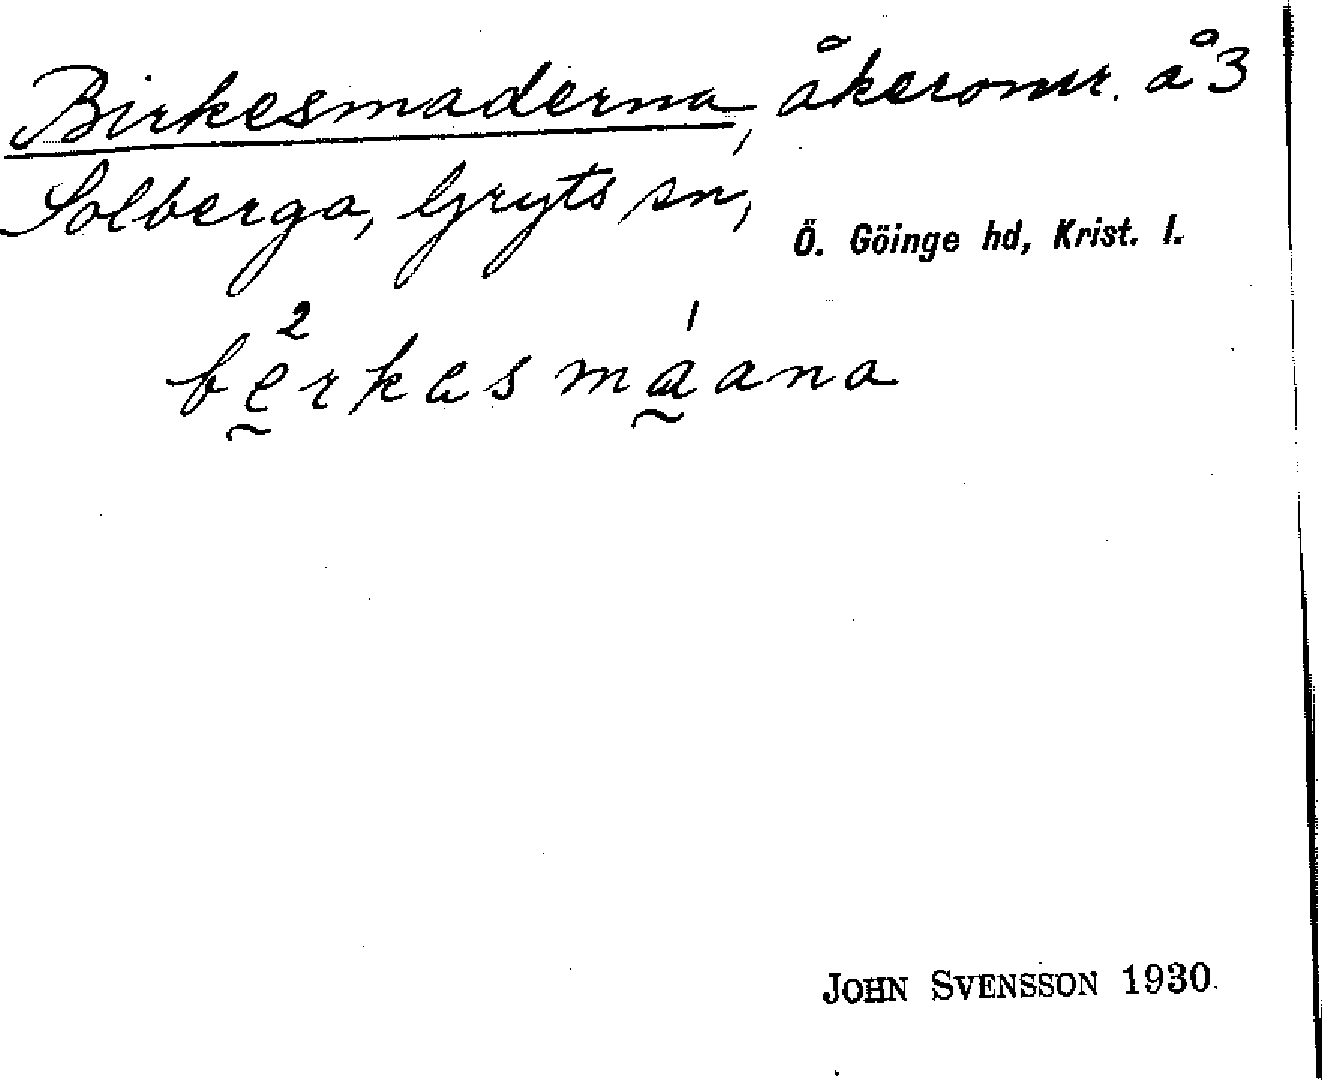 Birkesmaderna, åkeromr. å 3
Solberga, Gryts sn, Ö. Göinge hd, Krist. l.
2 1
bḛrkasma̰ana
JOHN SVENSSON 1930.